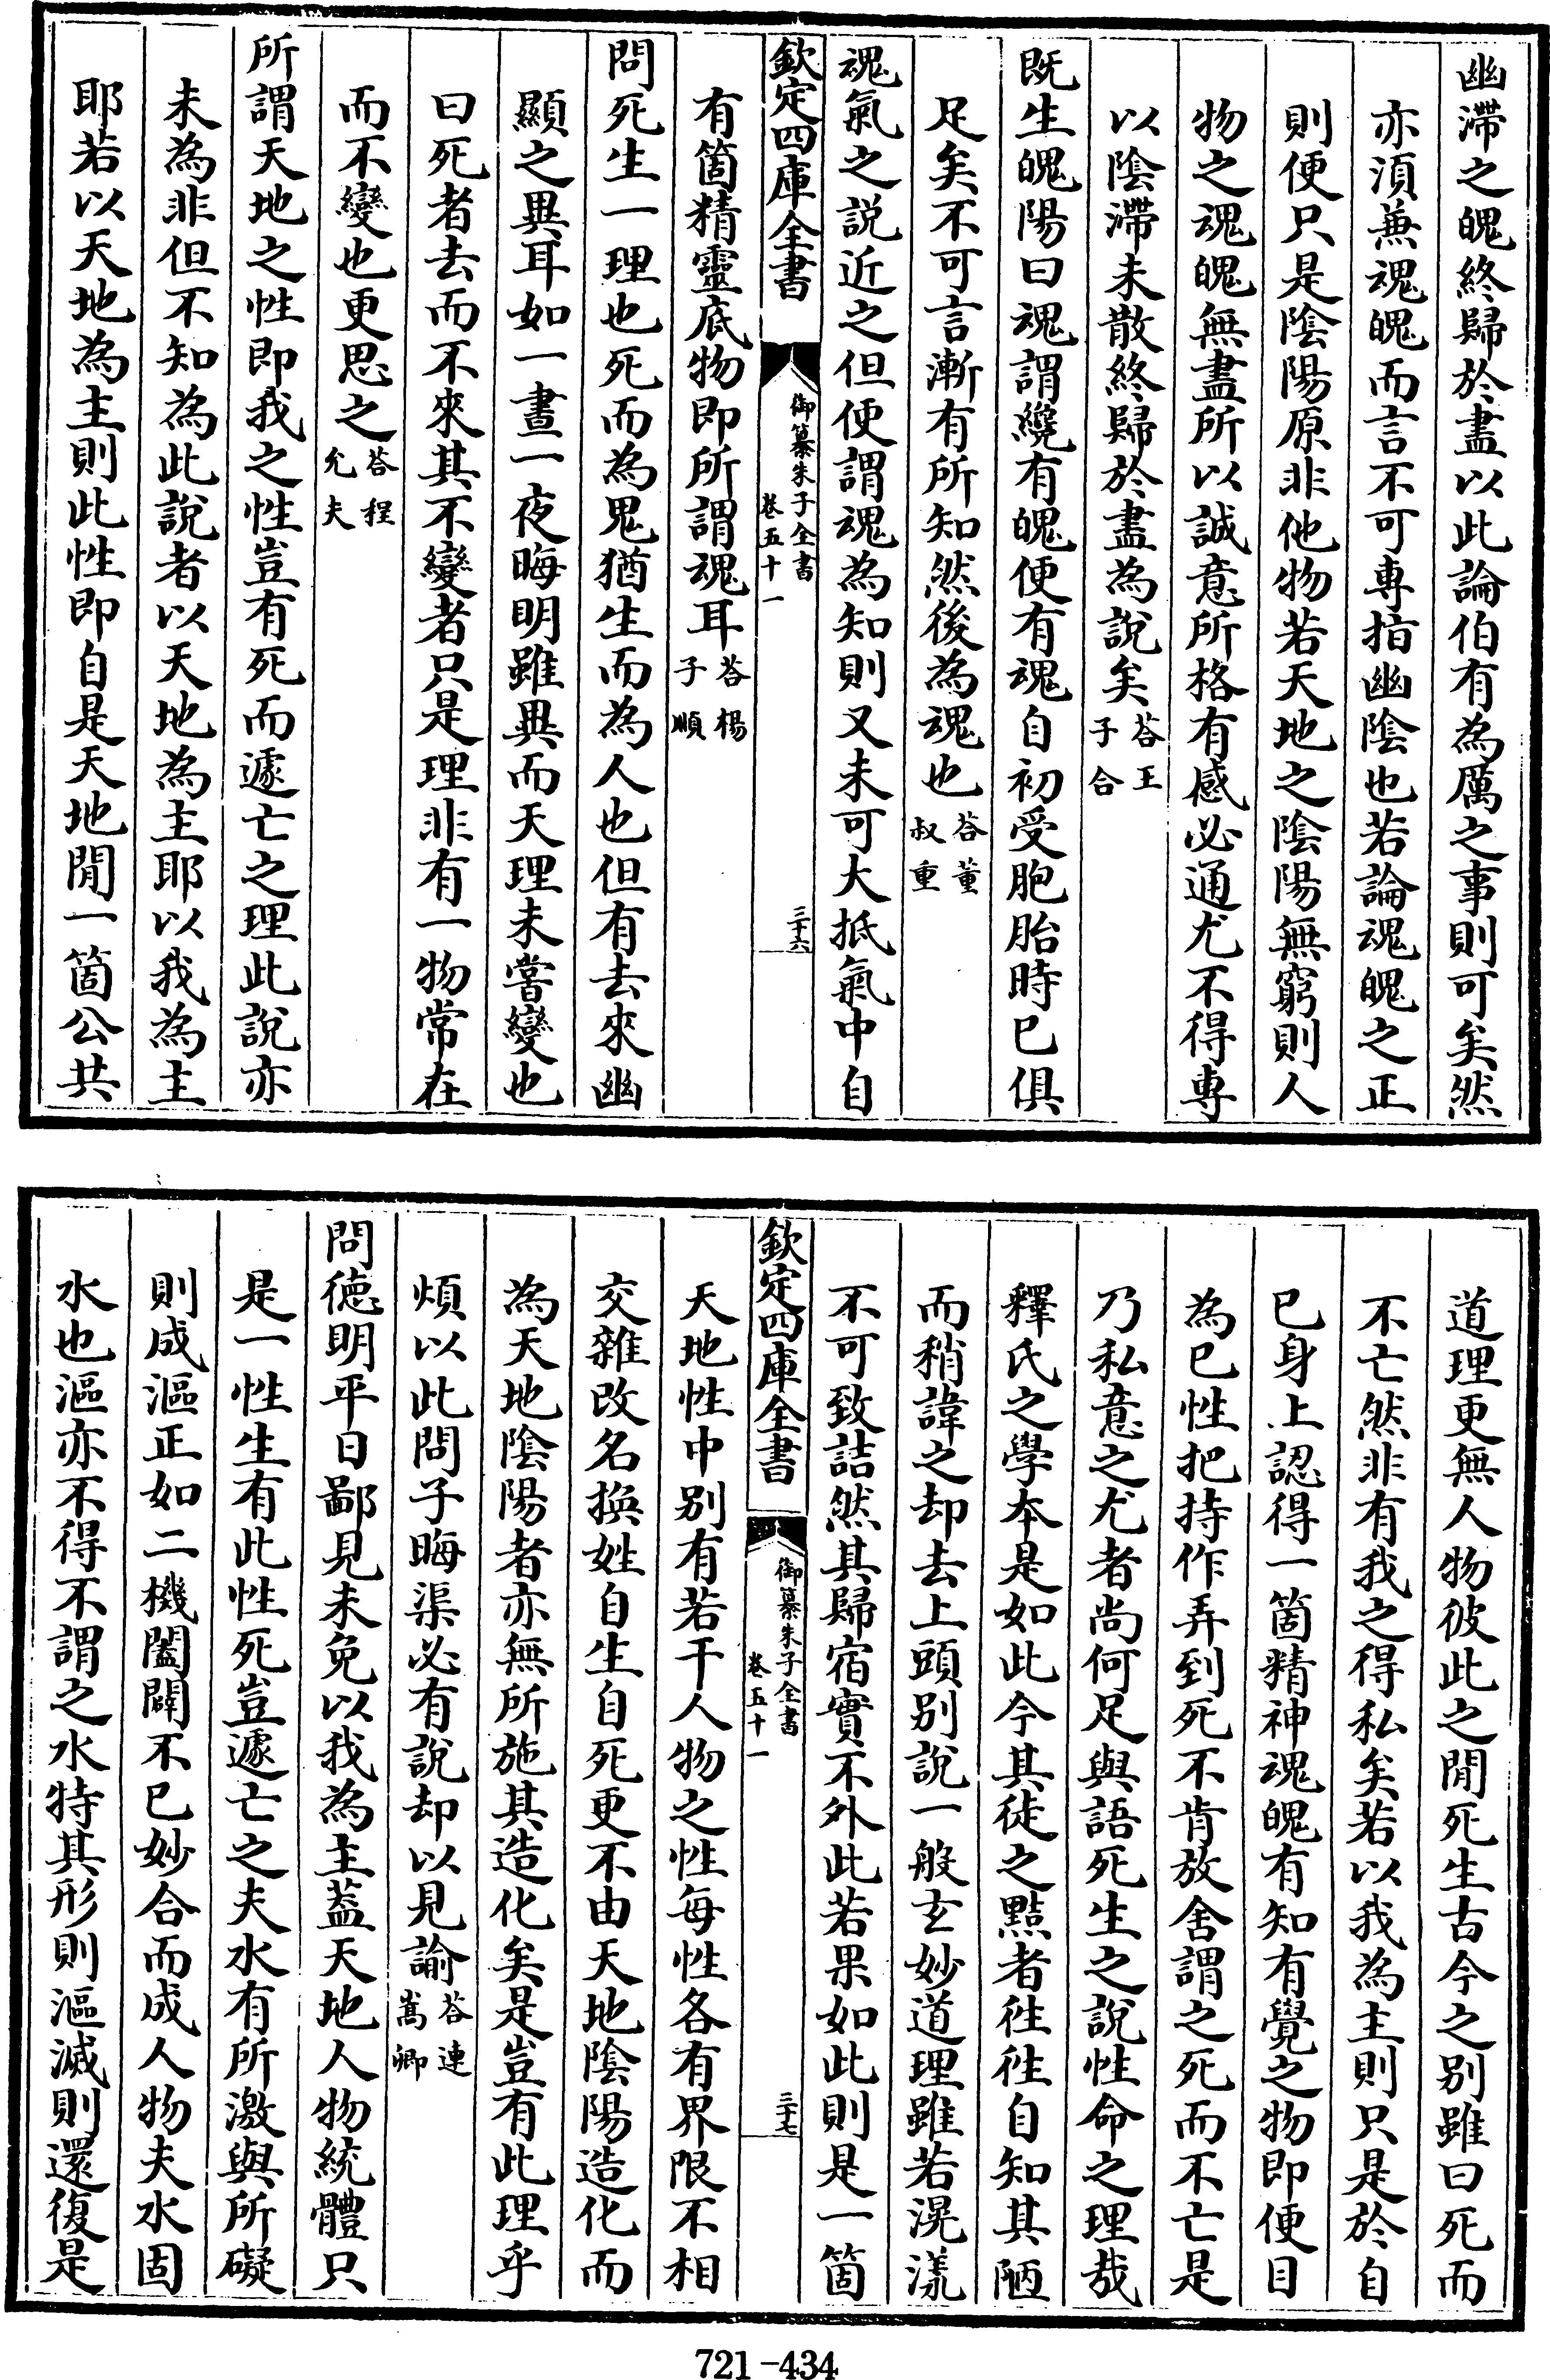 幽滯之魄終歸於盡以此論伯有為厲之事則可矣然
亦須兼魂魄而言不可專指幽陰也若論魂魄之正
則便只是陰陽原非他物若天地之陰陽無窮則人
物之魂魄無盡所以誠意所格有感必通尤不得專
以陰滯未散終歸於盡為說矣答王子合
既生魄陽曰魂謂纔有魄便有魂自初受胞胎時已俱
足矣不可言漸有所知然後為魂也答董叔重
魂氣之說近之但便謂魂為知則又未可大抵氣中自
欽定四庫全書
御纂朱子全書
卷五十一
三十六
有箇精靈底物即所謂魂耳答楊子順
問死生一理也死而為鬼猶生而為人也但有去來幽
顯之異耳如一晝一夜晦明雖異而天理未嘗變也
曰死者去而不來其不變者只是理非有一物常在
而不變也更思之答程允夫
所謂天地之性即我之性豈有死而遽亡之理此說亦
未為非但不知為此說者以天地為主耶以我為主
耶若以天地為主則此性即自是天地間一箇公共
道理更無人物彼此之間死生古今之别雖曰死而
不亡然非有我之得私矣若以我為主則只是於自
已身上認得一箇精神魂魄有知有覺之物即便目
為已性把持作弄到死不肯放舍謂之死而不亡是
乃私意之尤者尚何足與語死生之說性命之理哉
釋氏之學本是如此今其徒之黠者徃徃自知其陋
而稍諱之却去上頭别說一般玄妙道理雖若滉漾
不可致詰然其歸宿實不外此若果如此則是一箇
欽定四庫全書
御纂朱子全書
卷五十一
三十七
天地性中别有若干人物之性每性各有界限不相
交雜改名換姓自生自死更不由天地陰陽造化而
為天地陰陽者亦無所施其造化矣是豈有此理乎
煩以此問子晦渠必有說却以見諭答連嵩卿
問德明平日鄙見未免以我為主蓋天地人物統體只
是一性生有此性死豈遽亡之夫水有所激與所礙
則成漚正如二機闔闢不已妙合而成人物夫水固
水也漚亦不得不謂之水特其形則漚滅則還復是
721-434